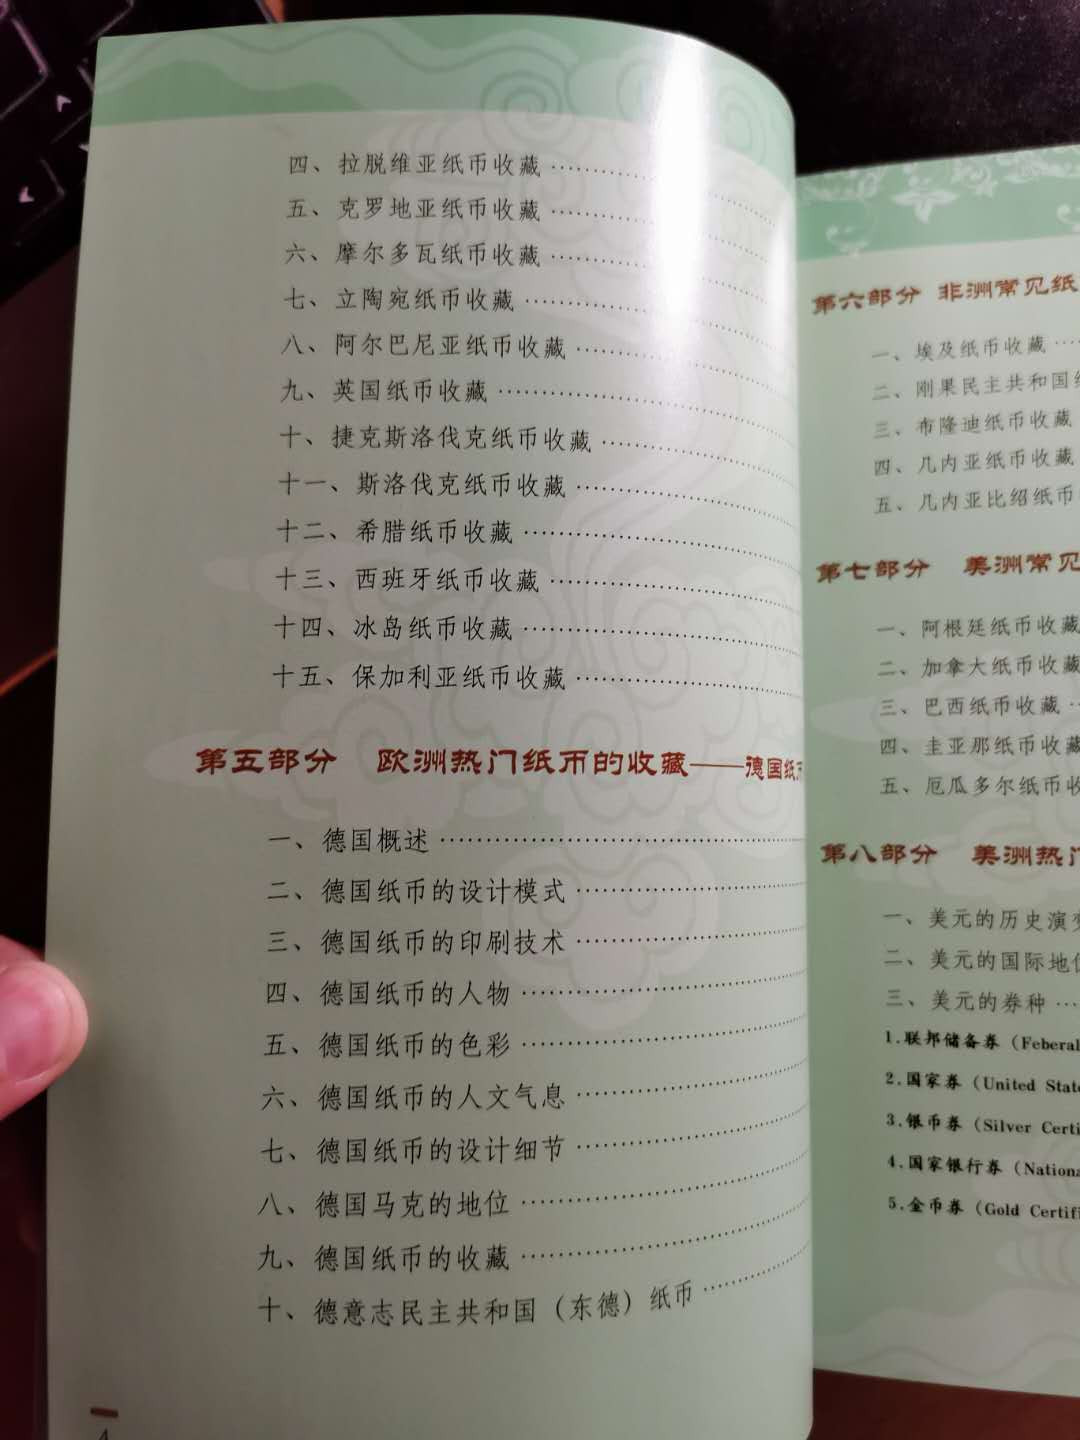 四、拉脱维亚纸币收藏
五、克罗地亚纸币收藏
六、摩尔多瓦纸币收藏
七、立陶宛纸币收藏
八、阿尔巴尼亚纸币收藏
九、英国纸币收藏
十、捷克斯洛伐克纸币收藏
十一、斯洛伐克纸币收藏
十二、希腊纸币收藏
十三、西班牙纸币收藏
十四、冰岛纸币收藏
十五、保加利亚纸币收藏
第五部分 欧洲热门纸币的收藏——德国纸币
一、德国概述
二、德国纸币的设计模式
三、德国纸币的印刷技术
四、德国纸币的人物
五、德国纸币的色彩
六、德国纸币的人文气息
七、德国纸币的设计细节
八、德国马克的地位
九、德国纸币的收藏
十、德意志民主共和国（东德）纸币
第六部分 非洲常见纸
一、埃及纸币收藏
二、刚果民主共和国
三、布隆迪纸币收藏
四、几内亚纸币收藏
五、几内亚比绍纸币
第七部分 美洲常见
一、阿根廷纸币收藏
二、加拿大纸币收藏
三、巴西纸币收藏
四、圭亚那纸币收藏
五、厄瓜多尔纸币收
第八部分 美洲热门
一、美元的历史演变
二、美元的国际地位
三、美元的券种
1.联邦储备券（Feberal
2.国家券（United State
3.银币券（Silver Certi
4.国家银行券（Nationa
5.金币券（Gold Certifi